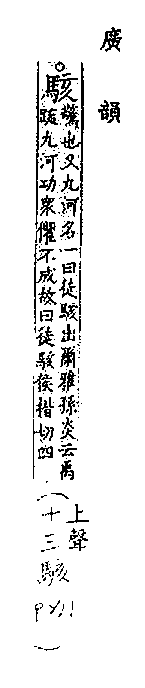 廣韻
駭驚也又九河名一曰徒駭出爾雅孫炎云禹
疏九河功衆懼不成故曰徒駭侯揩切四
(上聲
十三駭
)